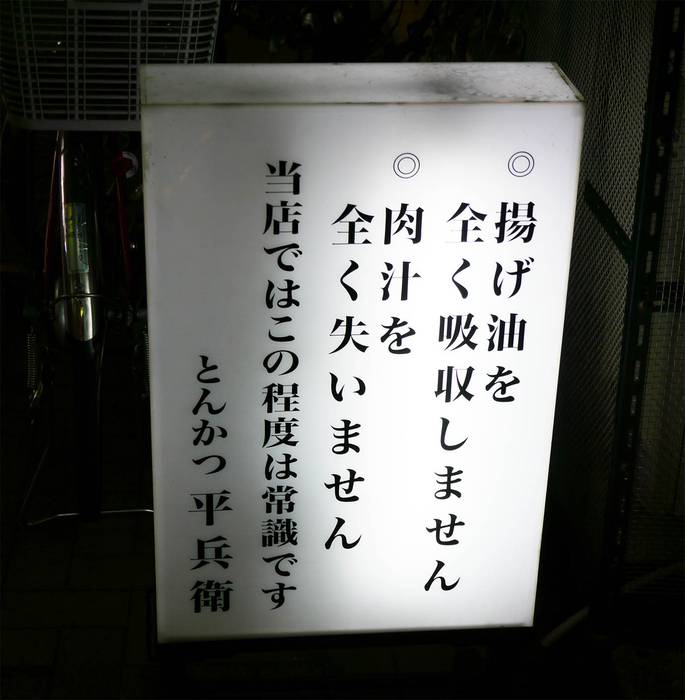 ◎揚げ油を
全く吸収しません
◎肉汁を
全く失いません
当店ではこの程度は常識です
とんかつ 平兵衛